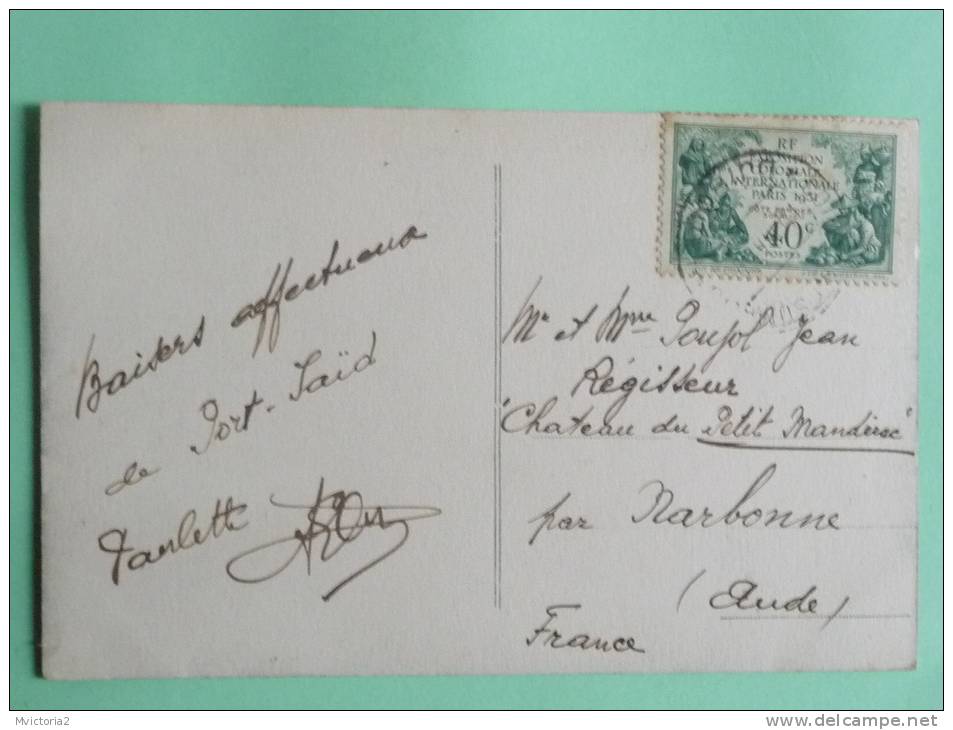 Baisers affectueux
de Port-Saïd
Paulette
RF
EXPOSITION
COLONIALE
INTERNATIONALE
PARIS 1931
40c
POSTES
Mr et Mme Poujol Jean
Régisseur
"Chateau du Petit Mandirac"
par Narbonne
(Aude)
France
Mvictoria2
www.delcampe.net